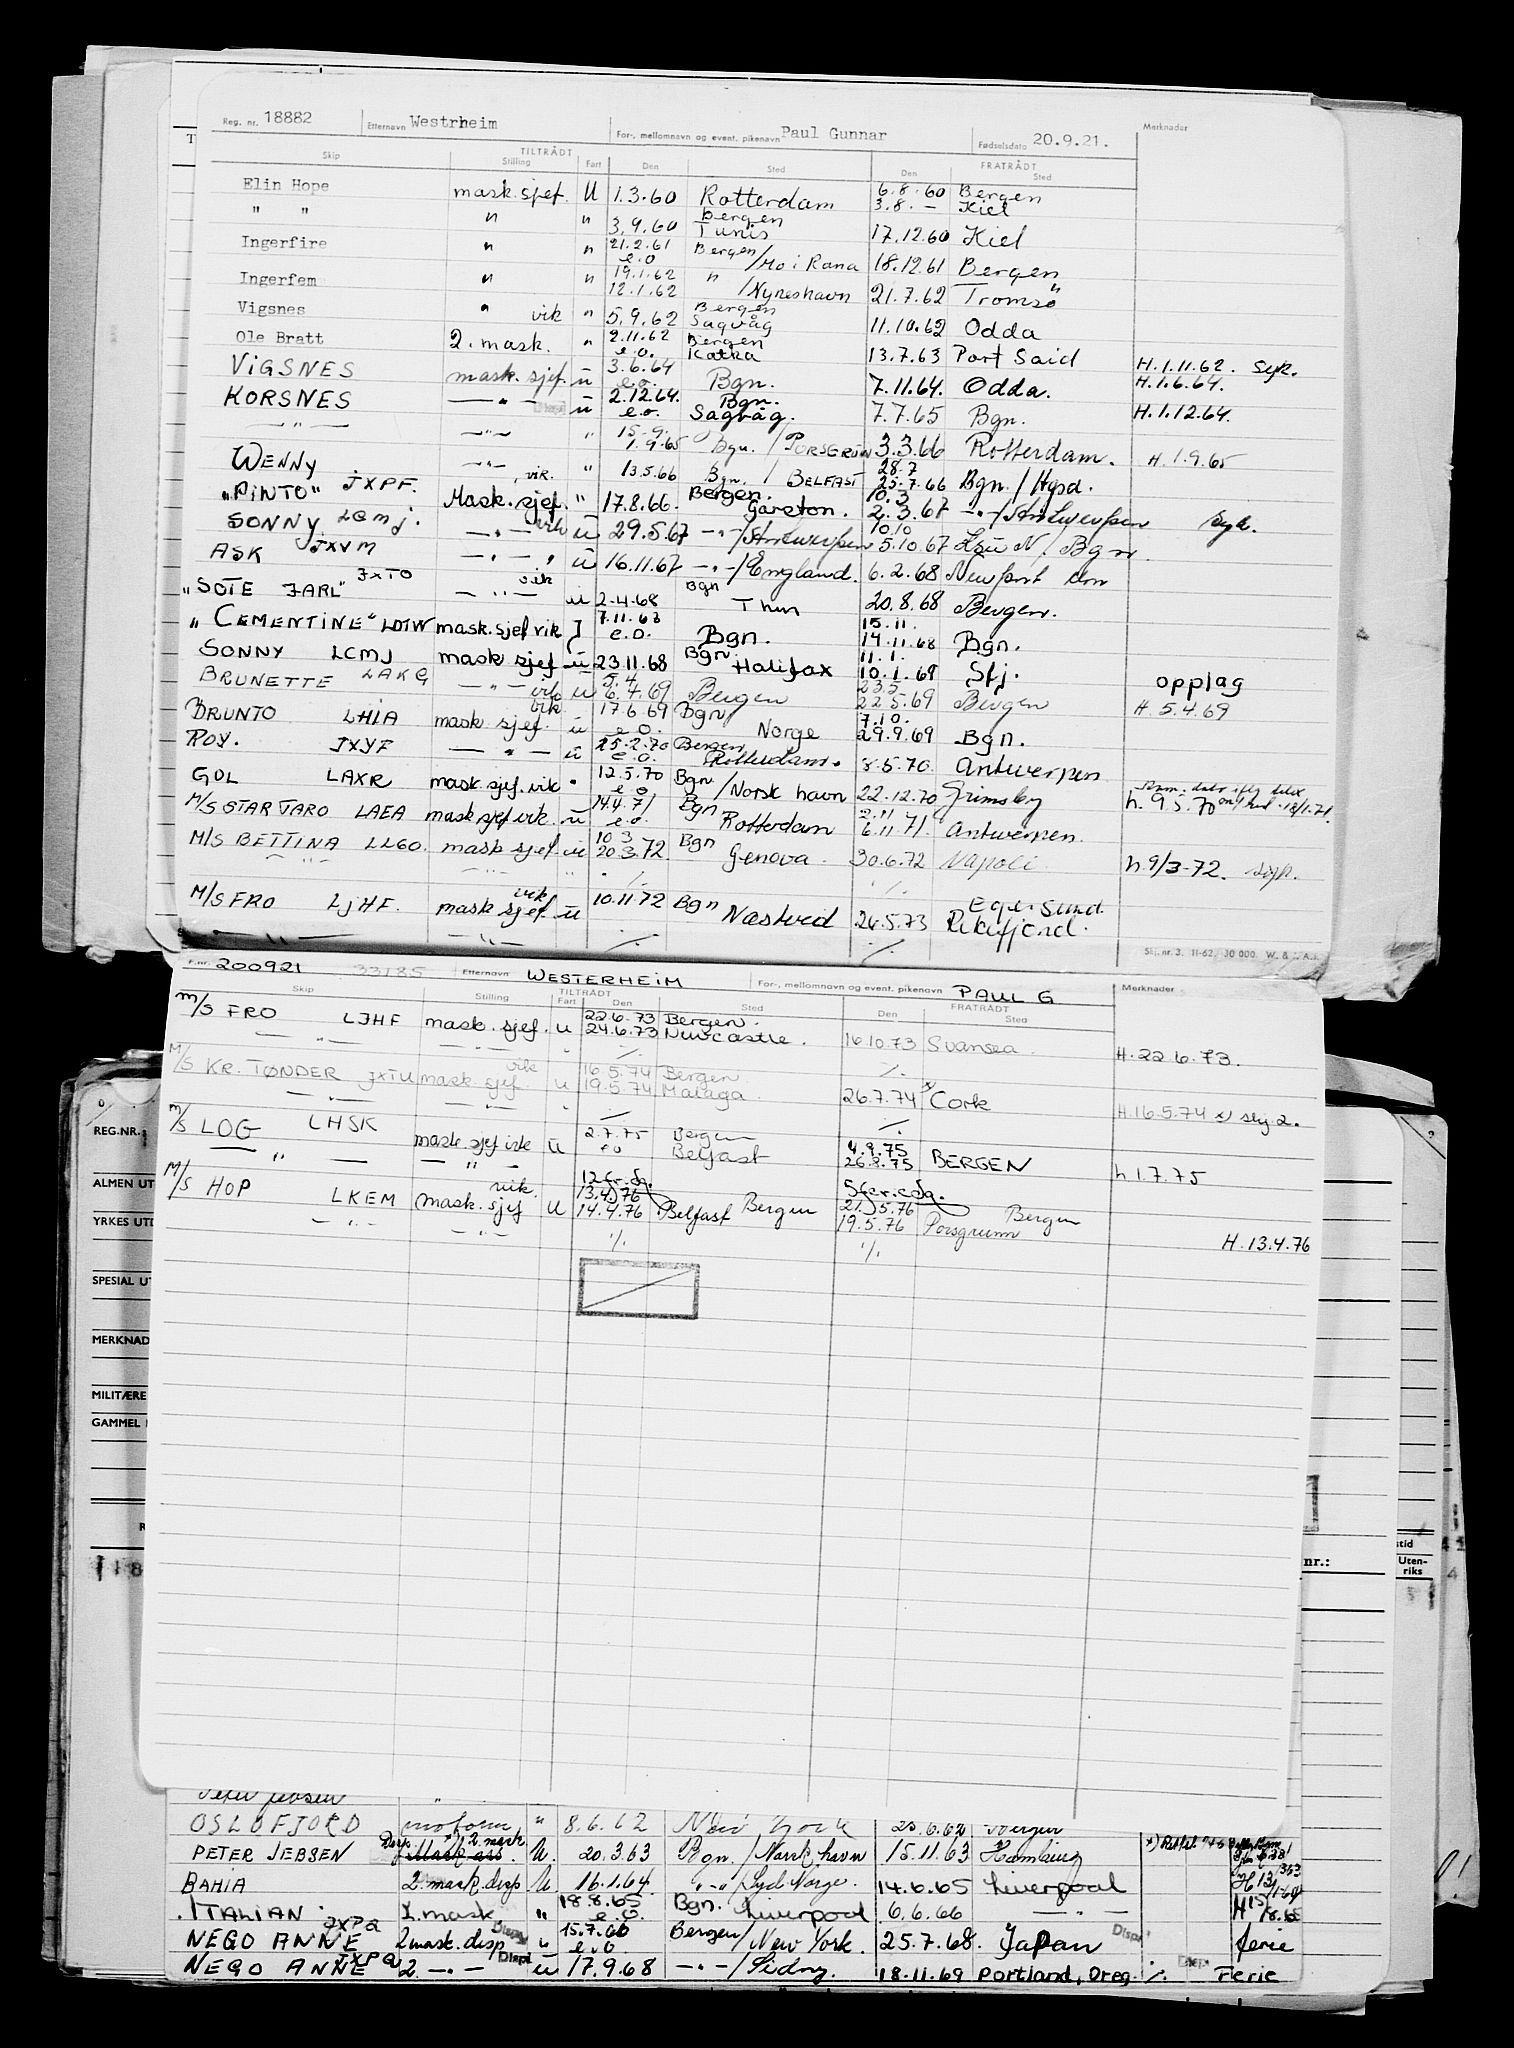 Reg. nr. 18882 Etternavn Westrheim For-, mellomnavn og event. pikenavn Paul Gunnar Fødselsdato 20.9.21. Merknader
Skip TILTRÅDT Stilling Fart Den Sted FRATRÅDT Den Sted
Elin Hope mask.sjef. U 1.3.60 Rotterdam 6.8.60 Bergen
" " " " 3.9.60 Bergen Tunis 3.8.- Kiel 17.12.60 Kiel
Ingerfire " " 21.2.61 e.o Bergen/Mo i Rana 18.12.61 Bergen
Ingerfem " " 19.1.62 12.1.62 " /Nyneshavn 21.7.62 Tromsø "
Vigsnes " vik " 5.9.62 Bergen Sagvåg 11.10.62 Odda
Ole Bratt 2. mask. " 2.11.62 e.o. Bergen Kotka 13.7.63 Port Said H.1.11.62. syk.
VIGSNES mask. sjef. u 3.6.64 e.o. Bgn. 7.11.64. Odda. H.1.6.64.
KORSNES —"— u 2.12.64. e.o. Bgn. Sagvåg. 7.7.65 Bgn. H.1.12.64.
—"— —"— " 15.9. 1.9.65 Bgn. / PORSGRUN 3.3.66 Rotterdam. H.1.9.65
WENNY —"— vik. " 13.5.66 Bgn. / BELFAST 28.7 25.7.66 Bgn/Hgsd.
"PINTO" JXPF. Mask.sjef. " 17.8.66. Bergen. Garston. 10.3 2.3.67 —"—/Antwerpen syk.
SONNY LCMJ. —"— vik u 29.5.67 —"—/Antwerpen 10.10 5.10.67 N/Bgn.
ASK JXVM —"— u 16.11.67 —"—/England. 6.2.68 Newport
"SOTE JARL" JXTO —"— vik u 2.4.68 Bgn 20.8.68 Bergen.
"CEMENTINE" LDIW mask.sjef vik 7.11.63 e.o. Bgn. 15.11. 14.11.68 Bgn.
SONNY LCMJ mask sjef u 23.11.68 Bgn. Halifax 11.1. 10.1.69 Sfj. opplag
BRUNETTE LAKG —"— vik u 5.4 6.4.69 Bergen 23.5 22.5.69 Bergen H 5.4.69
BRUNTO LHIA mask. sjef. vik. u 17.6.69 e.o. Bgn Norge 7.10. 29.9.69 Bgn.
ROY. JXYF —"— u 25.2.70 e.o. Bergen Rotterdam. 8.5.70. Antwerpen
GOL LAXR mask.sjef.vik " 12.5.70 e.o Bgn /Norsk havn 22.12.70 Grimsby h. 9.5.70
M/S STAR TARO LAEA mask sjef vik. u 14.4.71 e.o. Bgn Rotterdam 6.11.71. Antwerpen.
M/S BETTINA LLGO. mask sjef. u 10.3 20.3.72. Bgn Genova. 30.6.72 Napoli h.9/3-72. syk.
—"— —"— " ·/· ·/·
M/S FRO LJHF. mask sjef vik u 10.11.72 Bgn Næstved 26.5.73 Egersund. Rekefjord.
—"— —"— ·/· ·/·
Skj.nr.3. 11-62. 30 000. W. &
F.nr. 200921 33185 Etternavn WESTERHEIM For-, mellomnavn og event. pikenavn PAUL G Merknader
Skip TILTRÅDT Stilling Fart Den Sted FRATRÅDT Den Sted
M/S FRO LJHF mask. sjef. u 22.6.73 24.6.73 Bergen. Newcastle. 16.10.73 Svansea. H. 22.6.73.
—"— —"— " ·/· ·/·
M/S KR. TØNDER JXTU mask sjef. vik u 16.5.74 19.5.74 Bergen Malaga. 26.7.74 x) Cork H.16.5.74 x) skj 2.
—"— —"— " ·/· ·/·
M/S LOG LHSK mask.sjef vik u 2.7.75 eo Bergen Belfast 4.9.75 26.8.75 BERGEN h 1.7.75
—"— —"—
M/S HOP LKEM mask. sjef vik. U 12 fr.dg. 13.4.76 14.4.76 Belfast Bergen 5 fer.dg. 21.5.76 19.5.76 Bergen Porsgrunn H.13.4.76
—"— —"— ·/· ·/·
REG.NR.
ALMEN UT
YRKES UTD
SPESIAL UT
MERKNAD
MILITÆRE
GAMMEL
nr.:
stid
Uten-
riks
Peter Jebsen "
OSLOFJORD motorm " 8.6.62 New York 20.6.62 Bergen
PETER JEBSEN 2.mask Mask ass. U. 20.3.63 Bgn./Norsk havn 15.11.63 Hamburg
BAHIA 2.mask.disp U. 16.1.64. —"—/Syd Norge. 14.6.65 Liverpool
ITALIAN. 2.mask " 18.8.65 e.o. Bgn. Liverpool 6.6.66 —"—
NEGO ANNE JXPQ 2mask.disp Disp. u 15.7.66 e.o Bergen/New York. 25.7.68. Japan Disp. ferie
NEGO ANNE JXPQ 2.—"— Disp. u 17.9.68 —"—/Sidny. 18.11.69 Portland, Oreg. ·/· Disp Ferie